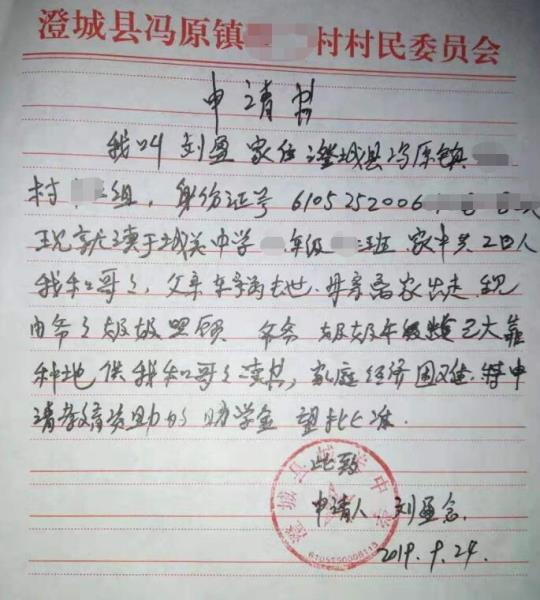 澄城县冯原镇 村村民委员会
申请书
我叫刘盈家住澄城县冯原镇
村 组，身份证号 6105252006
现就读于城关中学 年级 班 家中共2口人
我和哥々，父亲车祸去世，母亲离家出走，现
由爷々奶奶照顾 爷爷 奶奶年级 已大靠
种地供我和哥々读书，家庭经济困难，特申
请教育资助的助学金 望批准.
此致
申请人 刘盈
2019.9.24.
澄城县 关中学